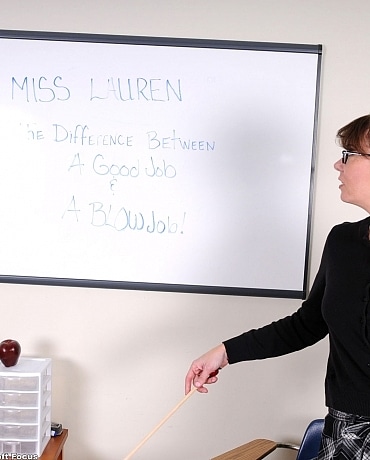 MISS LAUREN
The Difference Between
A Good Job
&
A Blow Job!
ft Focus